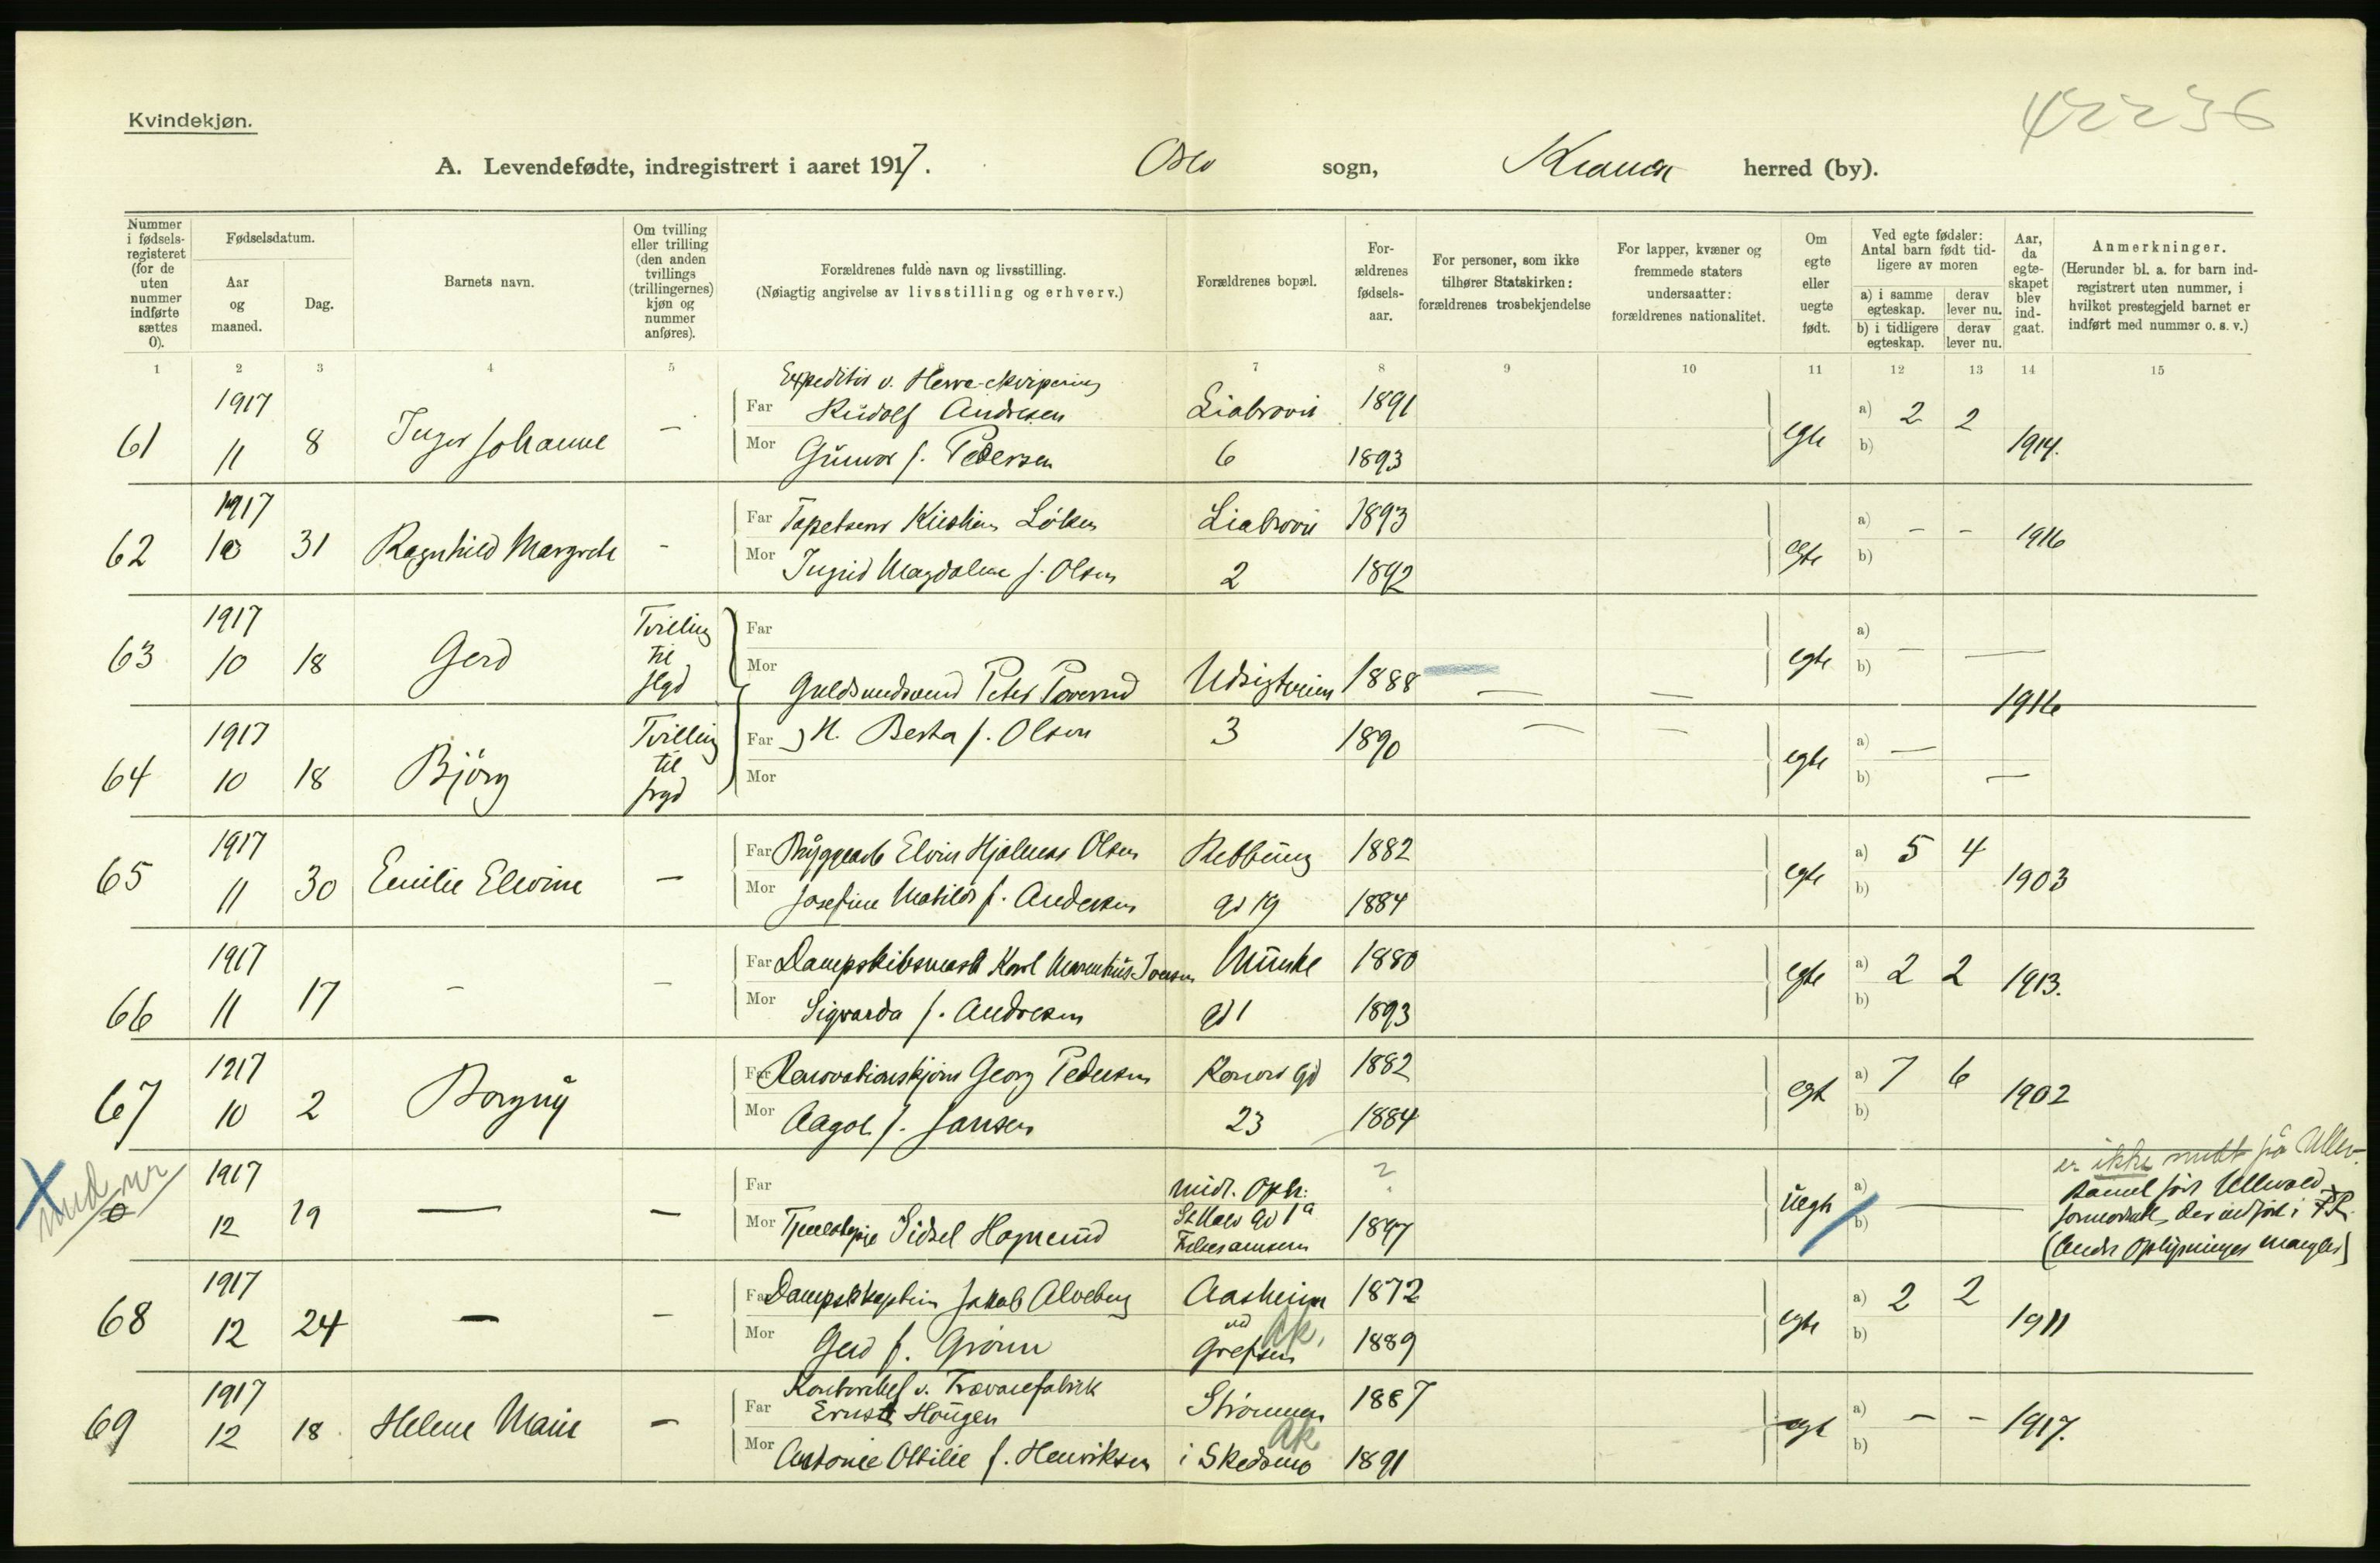 Kvindekjøn.
42236
A. Levendefødte, indregistrert i aaret 1917. Oslo sogn, Kra herred (by).
Nummer i fødselsregisteret (for de uten nummer indførte sættes 0).
Fødselsdatum.
Aar og maaned.
Dag.
Barnets navn.
Om tvilling eller trilling (den anden tvillings (trillingernes) kjøn og nummer anføres).
Forældrenes fulde navn og livsstilling.
(Nøiagtig angivelse av livsstilling og erhverv.)
Forældrenes bopæl.
Forældrenes fødselsaar.
For personer, som ikke tilhører Statskirken: forældrenes trosbekjendelse
For lapper, kvæner og fremmede staters undersaatter: forældrenes nationalitet.
Om egte eller uegte født.
Ved egte fødsler: Antal barn født tidligere av moren
a) i samme egteskap. derav lever nu.
b) i tidligere egteskap. derav lever nu.
Aar, da egteskapet blev indgaat.
Anmerkninger.
(Herunder bl. a. for barn indregistrert uten nummer, i hvilket prestegjeld barnet er indført med nummer o. s. v.)
1 2 3 4 5 7 8 9 10 11 12 13 14 15
Expeditør v. Herre-ekvipering
61 1917 11 8 Inger Johanne – Far Rudolf Andresen Liabrovei 1891 egte a) 2 2 1914.
Mor Gunvor f. Pedersen 6 1893 b)
62 1917 10 31 Ragnhild Margrete - Far Tapetserer Kristian Løken Liabrovei 1893 egte a) - - 1916
Mor Ingrid Magdalene f. Olsen 2 1892 b)
63 1917 10 18 Gerd Tvilling til flgd Far egte a) — —
Mor b)
Guldsmedsvend Peter Utsigtveien 1888 — — 1916
64 1917 10 18 Björg Tvilling til frgd Far H. Berta f. Olsen 3 1890 — — egte a) —
Mor b) —
65 1917 11 30 Emilie Elvine – Far Bryggearb Elvin Hjalmar Olsen Rebbung 1882 egte a) 5 4 1903
Mor Josefine Matilde f. Andersen gd 19 1884 b)
66 1917 11 17 - – Far Dampskibsmask Karl Marentius Ivensen Munke 1880 egte a) 2 2 1913.
Mor Sigvarda f. Andresen gd 1 1893 b)
67 1917 10 2 Borgny Far Renovationskjører Georg Pedersen Konows gd 1882 egte a) 7 6 1902
Mor Aagot f. Jansen 23 1884 b)
er ikke født på Ullev.
0 1917 12 19 — – Far midl. Oph: ? uegte a) —
Mor Tjenestepige Sidsel Hagnerud St Halv gd 1a Frelsesarmeen 1897 b)
Barnet født Ullevold,
formodentl. der indført i F.R.
(Andre Oplysninger mangler)
68 1917 12 24 – – Far Dampskkaptein Jakob Alveberg Aasheim 1872 egte a) 2 2 1911
Mor Gerd f. Grønn ved Grefsen Ak. 1889 b)
Kontorchef v. Trævarefabrik
69 1917 12 18 Helene Marie – Far Ernst Hougen Strømmen 1887 egte a) - - 1917.
Mor Antonie Ottilie f. Henriksen i Skedsmo Ak 1891 b)